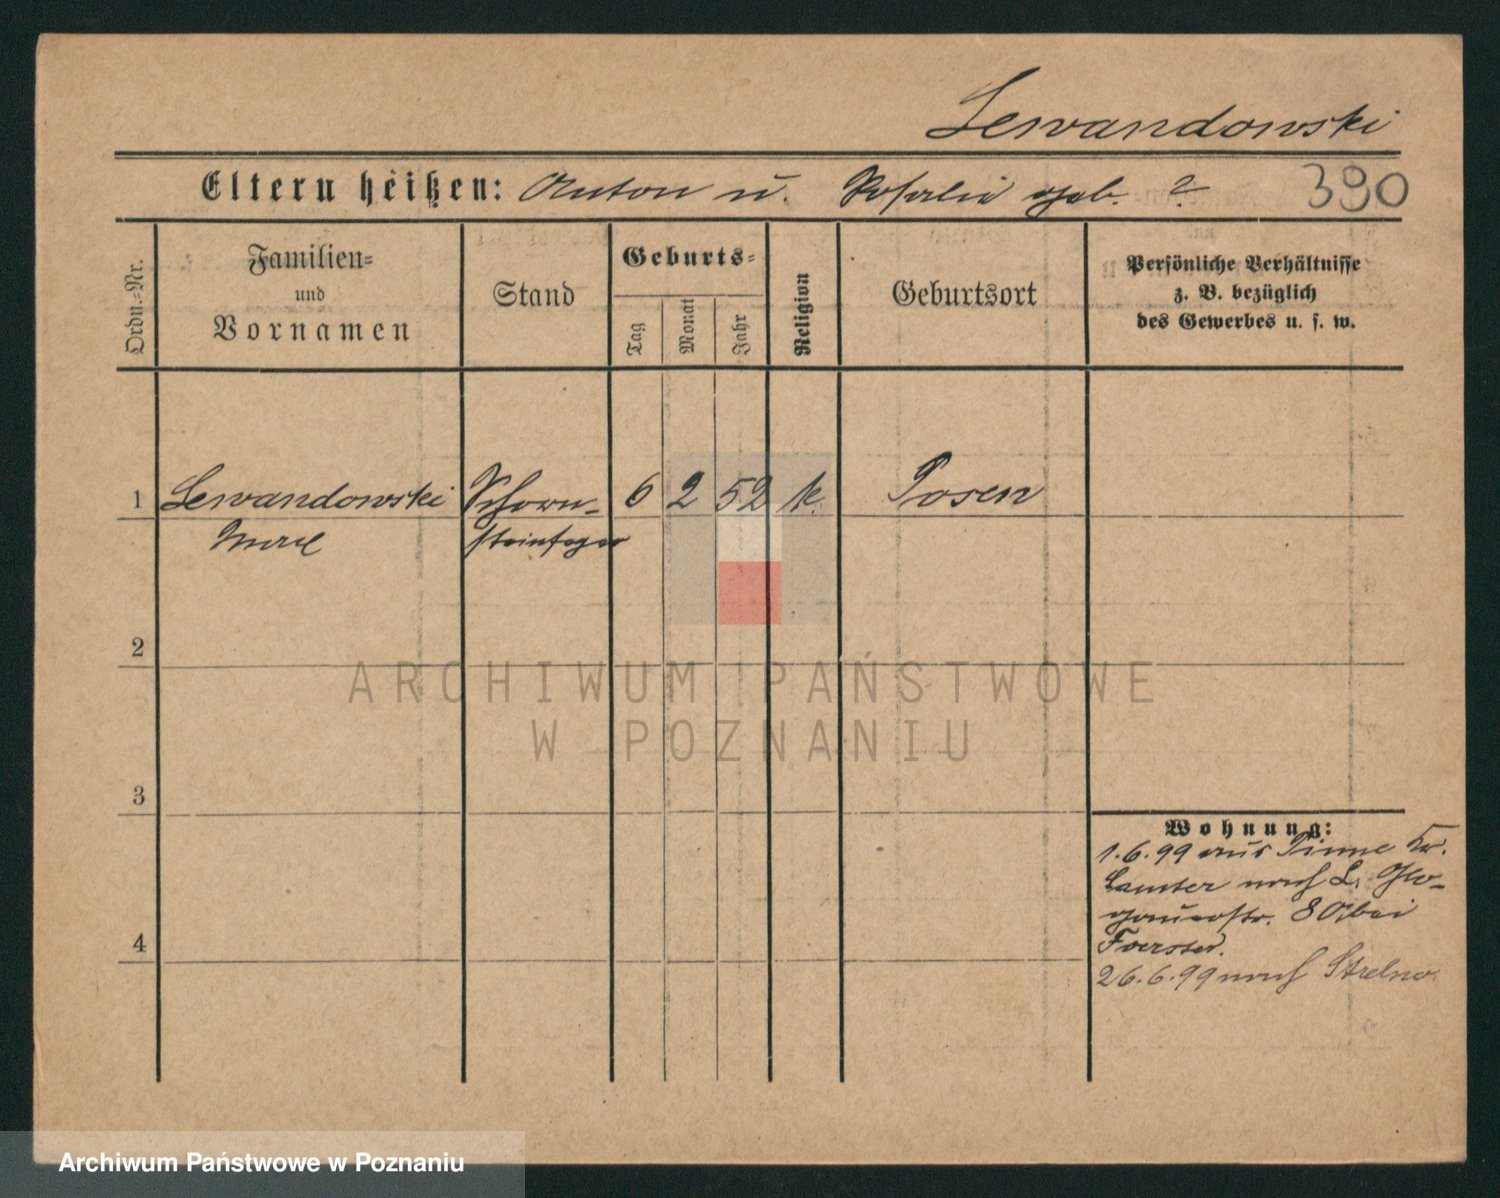 Lewandowski
Eltern heißen: Anton u. Rosalie geb. ?
390
Ordn.=Nr.
Familien=
und
Vornamen
Stand
Geburts=
Tag
Monat
Jahr
Religion
Geburtsort
Persönliche Verhältnisse
z. B. bezüglich
des Gewerbes u. s. w.
1 Lewandowski Schorn- 6 2 52 k. Posen
steinfeger
2
3
4
Wohnung:
1.6.99 aus Pinne Kr.
Samter nach L. Glo-
gauerstr. 80 bei
Foerster.
26.6.99 nach Strelno.
ARCHIWUM PAŃSTWOWE
W POZNANIU
Archiwum Państwowe w Poznaniu